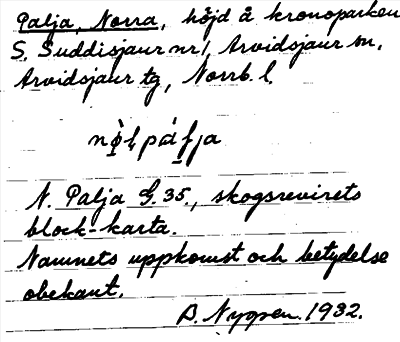 Palja, Norra, höjd å kronoparken
S. Suddisjaur nr 1, Arvidsjaur sn,
Arvidsjaur tg, Norrb. l.
N. Palja G. 35., skogsrevirets
block-karta.
Namnets uppkomst och betydelse
obekant.
B. Nygren. 1932.